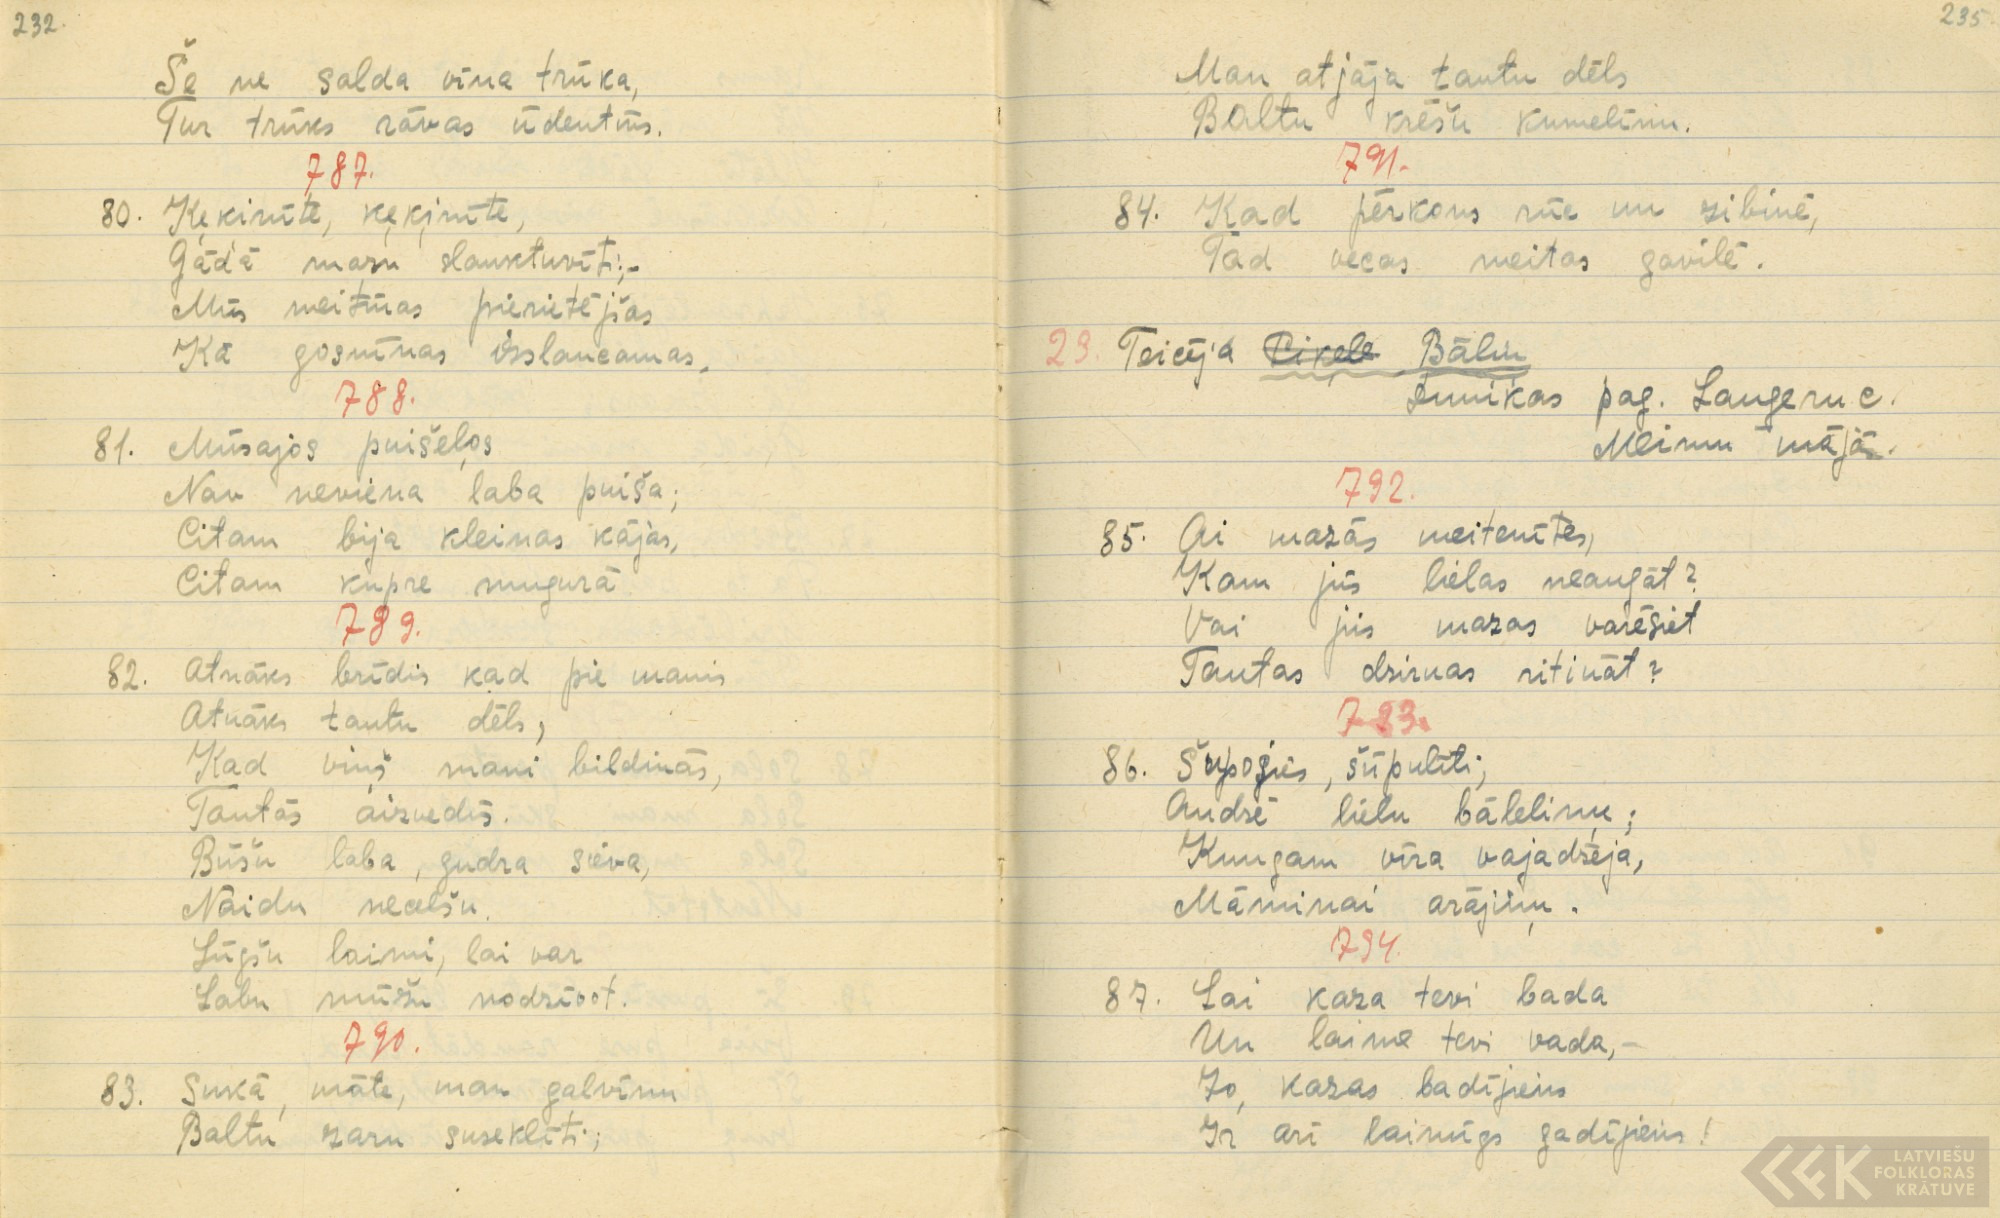 232.
Še ne salda vīna trūka,
Tur trūks rāvas ūdentiņs.
787.
80. Ķeķinīte, ķeķinīte,
Gādā mazu slauktuvīti;-
Mūs meitiņas pierietējšas
Kā gosniņas isslaucamas.
788.
81. Mūsajos puišeļos
Nav neviena laba puiša;
Citam bija kleinas kājas,
Citam kupre mugurā
789.
82. Atnāks brīdis kad pie manis
Atnāks tautu dēls,
Kad viņš mani bildinās,
Tautās aizvedīs.
Būšu laba, gudra sieva,
Naidu necelšu.
Lūgšu laimi, lai var
Labu mūžu nodzīvot.
790.
83. Sukā, māte, man galviņu
Baltu zaru suseklīti;
235.
Man atjāja tautu dēls
Baltu krēšu kumeliņu.
791.
84. Kad pērkons rūc un zibinē,
Tad vecas meitas gavilē.
23. Teicēja Cikele Bāliņ
Annikas pag. Langeru c.
Meinu mājā.
792.
85. Ai mazās meitenītes,
Kam jūs lielas neaugāt?
Vai jūs mazas varēsiet
Tautas dzirnas ritināt?
793.
86. Šūpojies, šūpulīti;
Audzē lielu bāleliņu;
Kungam vīra vajadzēja,
Māmiņai arājiņu.
794.
87. Lai kaza tevi bada
Un laime tevi vada,-
Jo, kazas badījiens
Ir arī laimīgs gadījiens!
LATVIEŠU
FOLKLORAS
KRĀTUVE